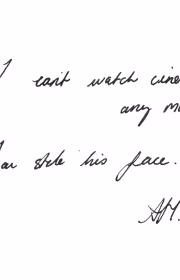 I can't watch cine
any mo
ar stole his face.
AM.